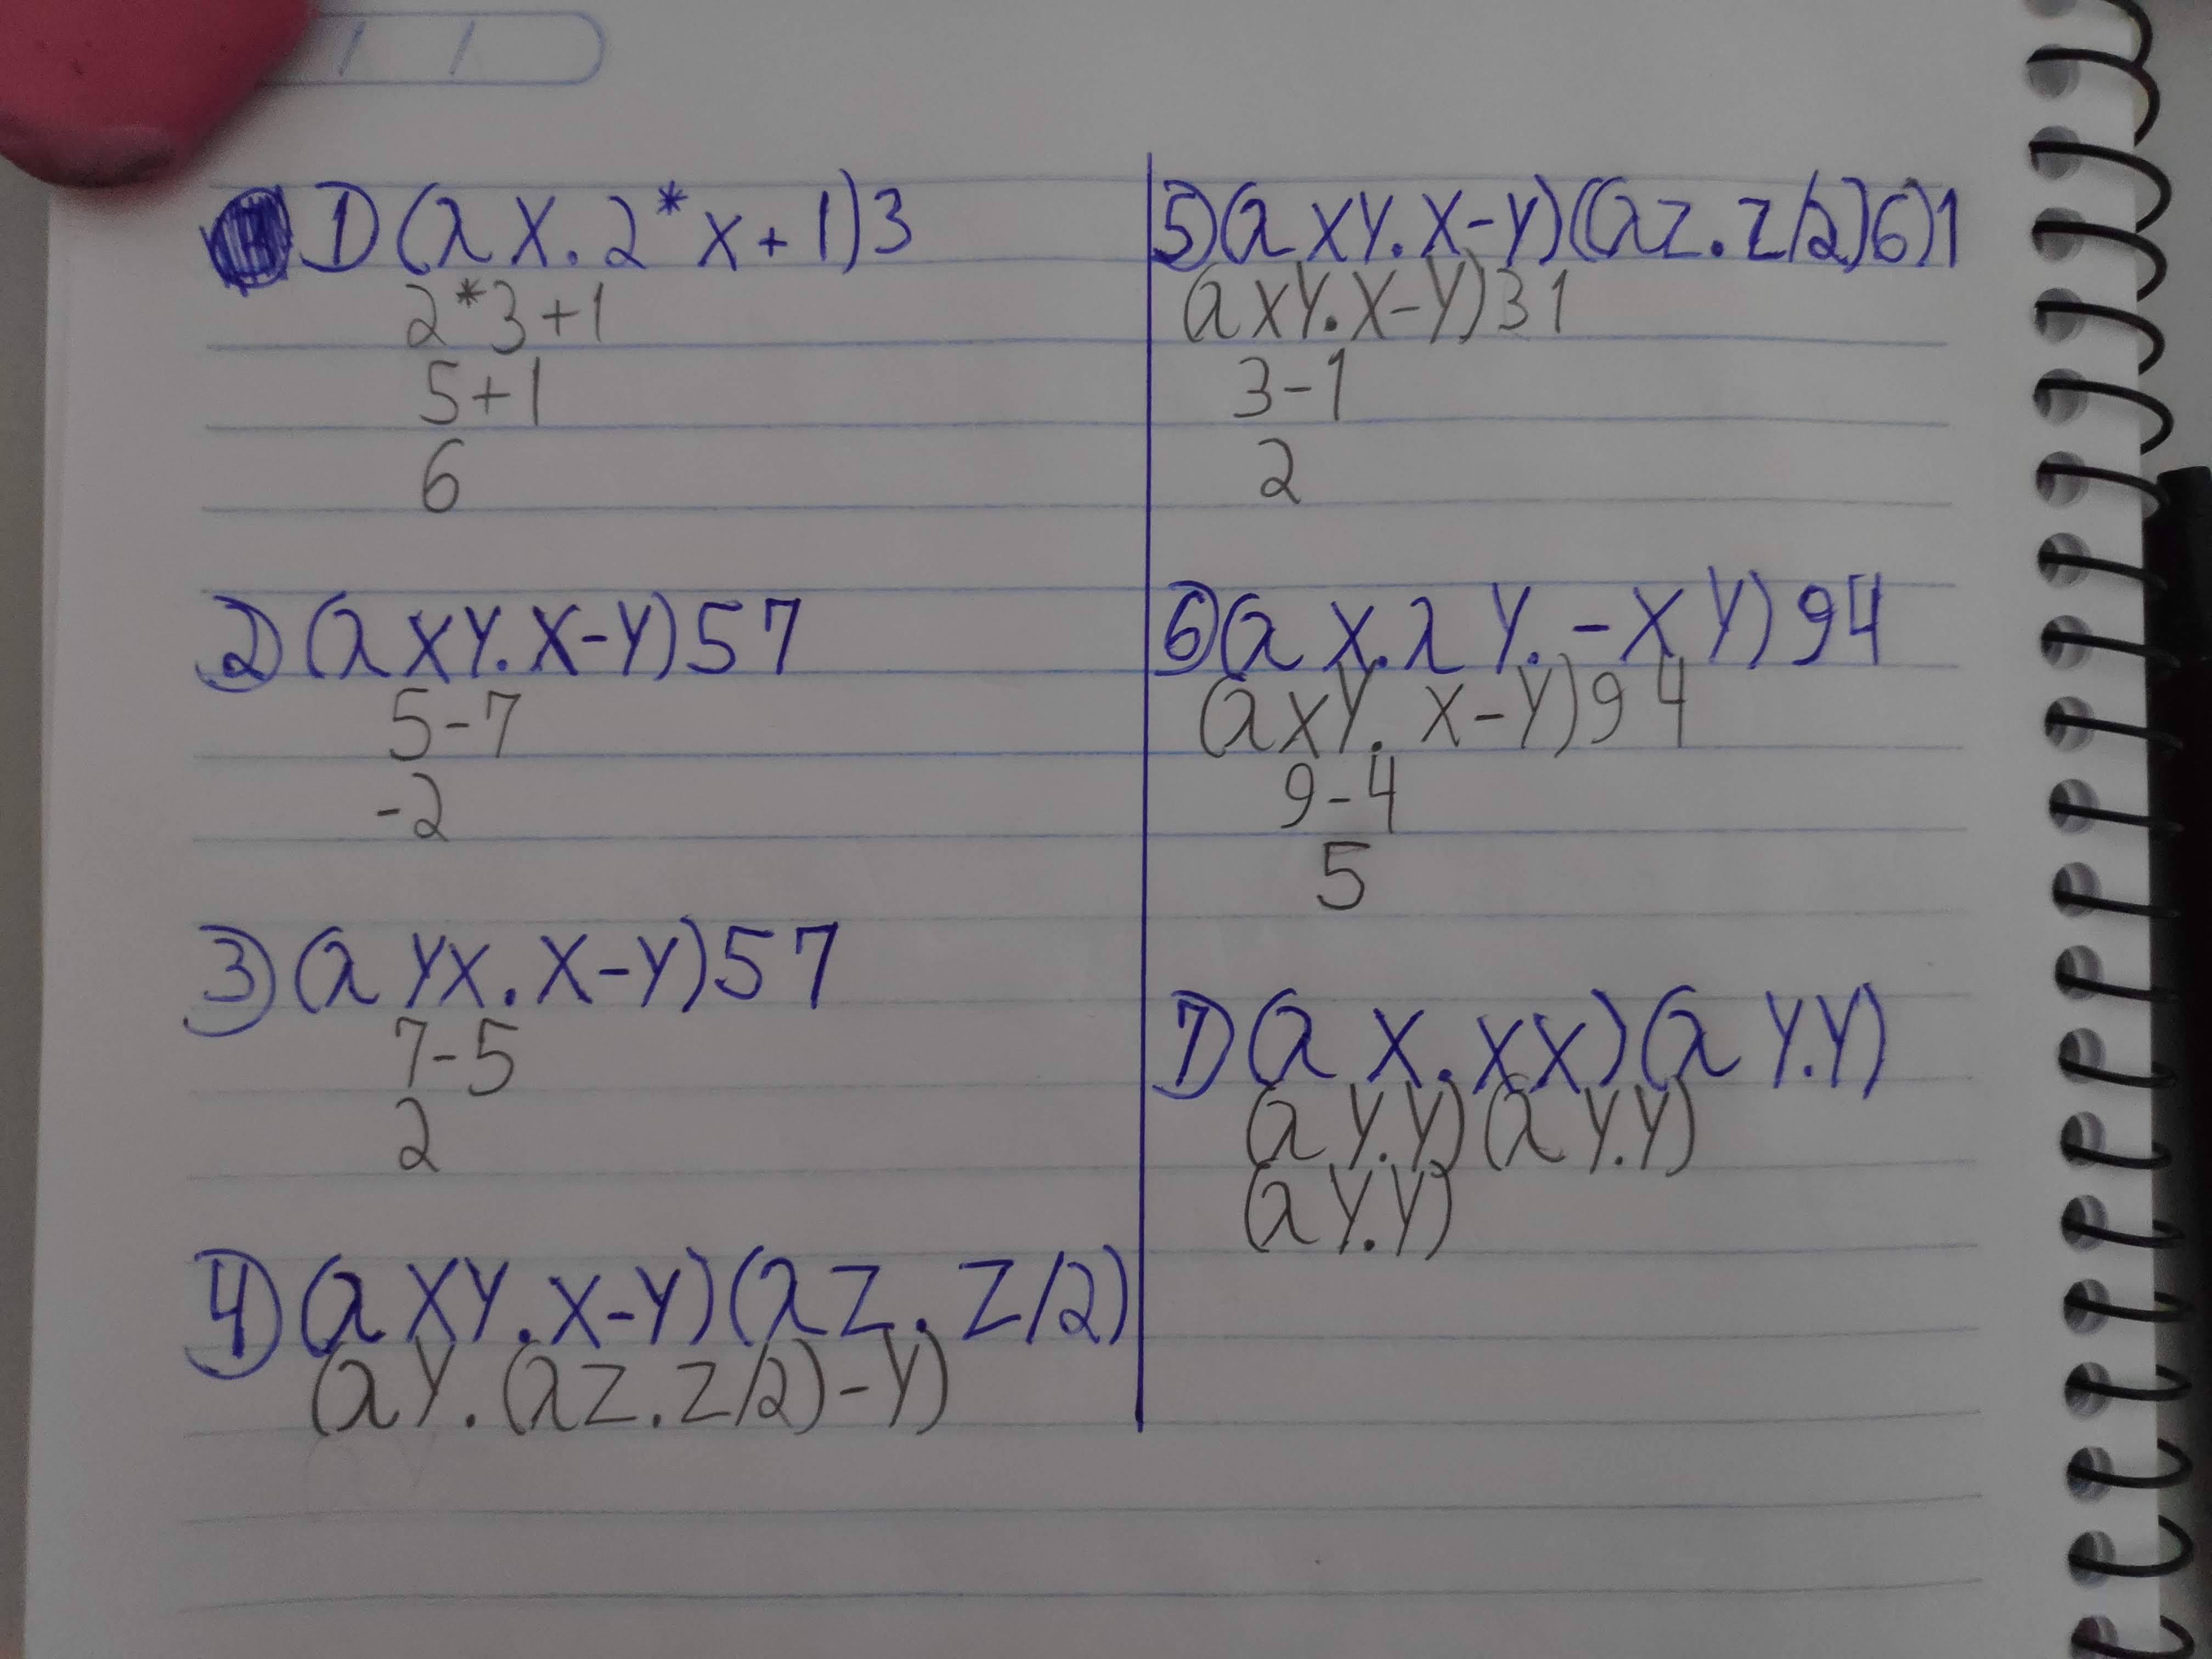 1) (λ X. 2*X+1)3
2*3+1
5+1
6
2) (λ XY. X-Y)57
5-7
-2
3) (λ YX. X-Y)57
7-5
2
4) (λ XY. X-Y)(λZ. Z/2)
(λY. (λZ. Z/2)-Y)
5) (λ XY. X-Y)((λZ. Z/2)6)1
(λXY. X-Y)31
3-1
2
6) (λ X. λ Y. -X Y) 94
(λXY. X-Y)94
9-4
5
7) (λ X. XX)(λ Y.Y)
(λ Y.Y)(λ Y.Y)
(λ Y.Y)